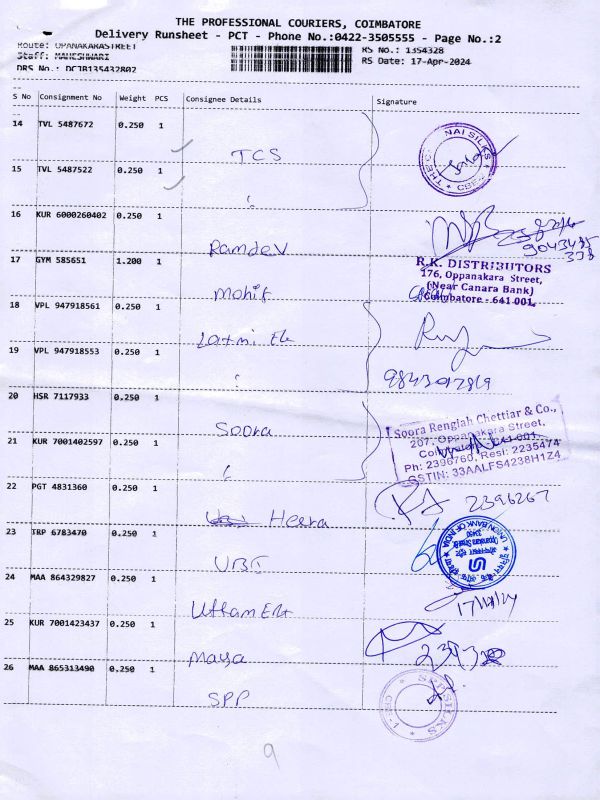 THE PROFESSIONAL COURIERS, COIMBATORE
Delivery Runsheet - PCT - Phone No.:0422-3505555 - Page No.:2
Route: OPANAKARASTREET
Staff: MAHESHWARI
DRS No.: DCJB135432802
RS No.: 1354328
RS Date: 17-Apr-2024
S No Consignment No Weight PCS Consignee Details Signature
14 TVL 5487672 0.250 1 TCS
THE NAI SILKS CBE-1
15 TVL 5487522 0.250 1 "
16 KUR 6000260402 0.250 1 Ramdev
9043435
338
17 GYM 585651 1.200 1 Mohit
R.K. DISTRIBUTORS
176, Oppanakara Street,
(Near Canara Bank)
Coimbatore - 641 001.
18 VPL 947918561 0.250 1 Laxmi Ele
19 VPL 947918553 0.250 1 "
20 HSR 7117933 0.250 1 Soora
Soora Rengiah Chettiar & Co.,
207, Oppanakara Street,
Coimbatore - 641 001.
Ph: 2396760, Resi: 2235474
GSTIN: 33AALFS4238H1Z4
21 KUR 7001402597 0.250 1 "
22 PGT 4831360 0.250 1 Heera
2396267
23 TRP 6783470 0.250 1 UBI
UNION BANK OF INDIA
24 MAA 864329827 0.250 1 Uttam Ele
25 KUR 7001423437 0.250 1 Maya
26 MAA 865313490 0.250 1 SPP
SPP SILKS CBE-1
9